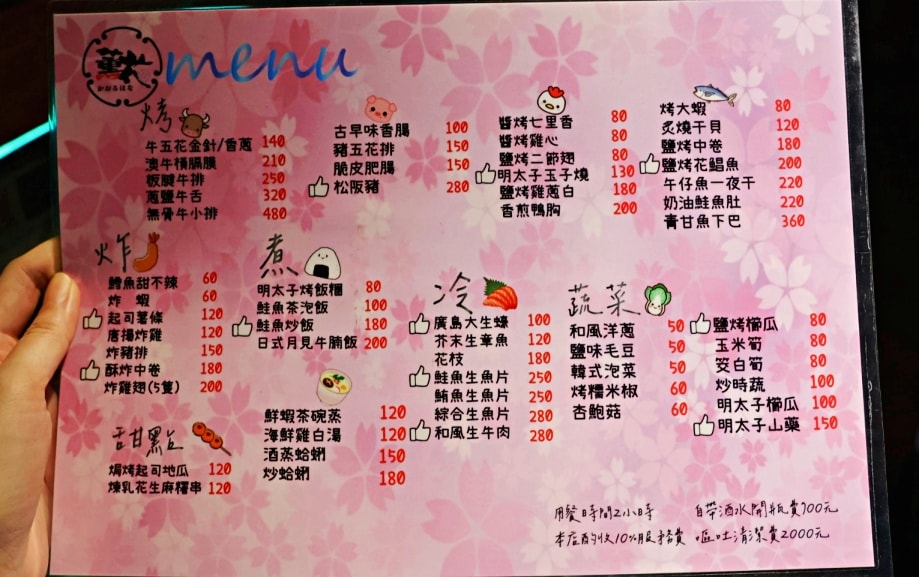 薰花
かおるはな
menu
烤
牛五花金針/香蔥 140
澳牛橫膈膜 210
板腱牛排 250
蔥鹽牛舌 320
無骨牛小排 480
古早味香腸 100
豬五花排 150
脆皮肥腸 150
松阪豬 280
醬烤七里香 80
醬烤雞心 80
鹽烤二節翅 80
明太子玉子燒 130
鹽烤雞蔥白 180
香煎鴨胸 200
烤大蝦 80
炙燒干貝 120
鹽烤中卷 180
鹽烤花鯧魚 200
午仔魚一夜干 220
奶油鮭魚肚 220
青甘魚下巴 360
炸
鱈魚甜不辣 60
炸 蝦 60
起司薯條 120
唐揚炸雞 120
炸豬排 150
酥炸中卷 180
炸雞翅(5隻) 200
煮
明太子烤飯糰 80
鮭魚茶泡飯 100
鮭魚炒飯 180
日式月見牛腩飯 200
鮮蝦茶碗蒸 120
海鮮雞白湯 120
酒蒸蛤蜊 150
炒蛤蜊 180
冷
廣島大生蠔 100
芥末生章魚 120
花枝 180
鮭魚生魚片 250
鮪魚生魚片 250
綜合生魚片 280
和風生牛肉 280
蔬菜
和風洋蔥 50
鹽味毛豆 50
韓式泡菜 50
烤糯米椒 60
杏鮑菇 60
鹽烤櫛瓜 80
玉米筍 80
筊白筍 80
炒時蔬 100
明太子櫛瓜 100
明太子山藥 150
甜點
焗烤起司地瓜 120
煉乳花生麻糬串 120
用餐時間2小時 自帶酒水開瓶費700元
本店酌收10%服務費 嘔吐清潔費2000元